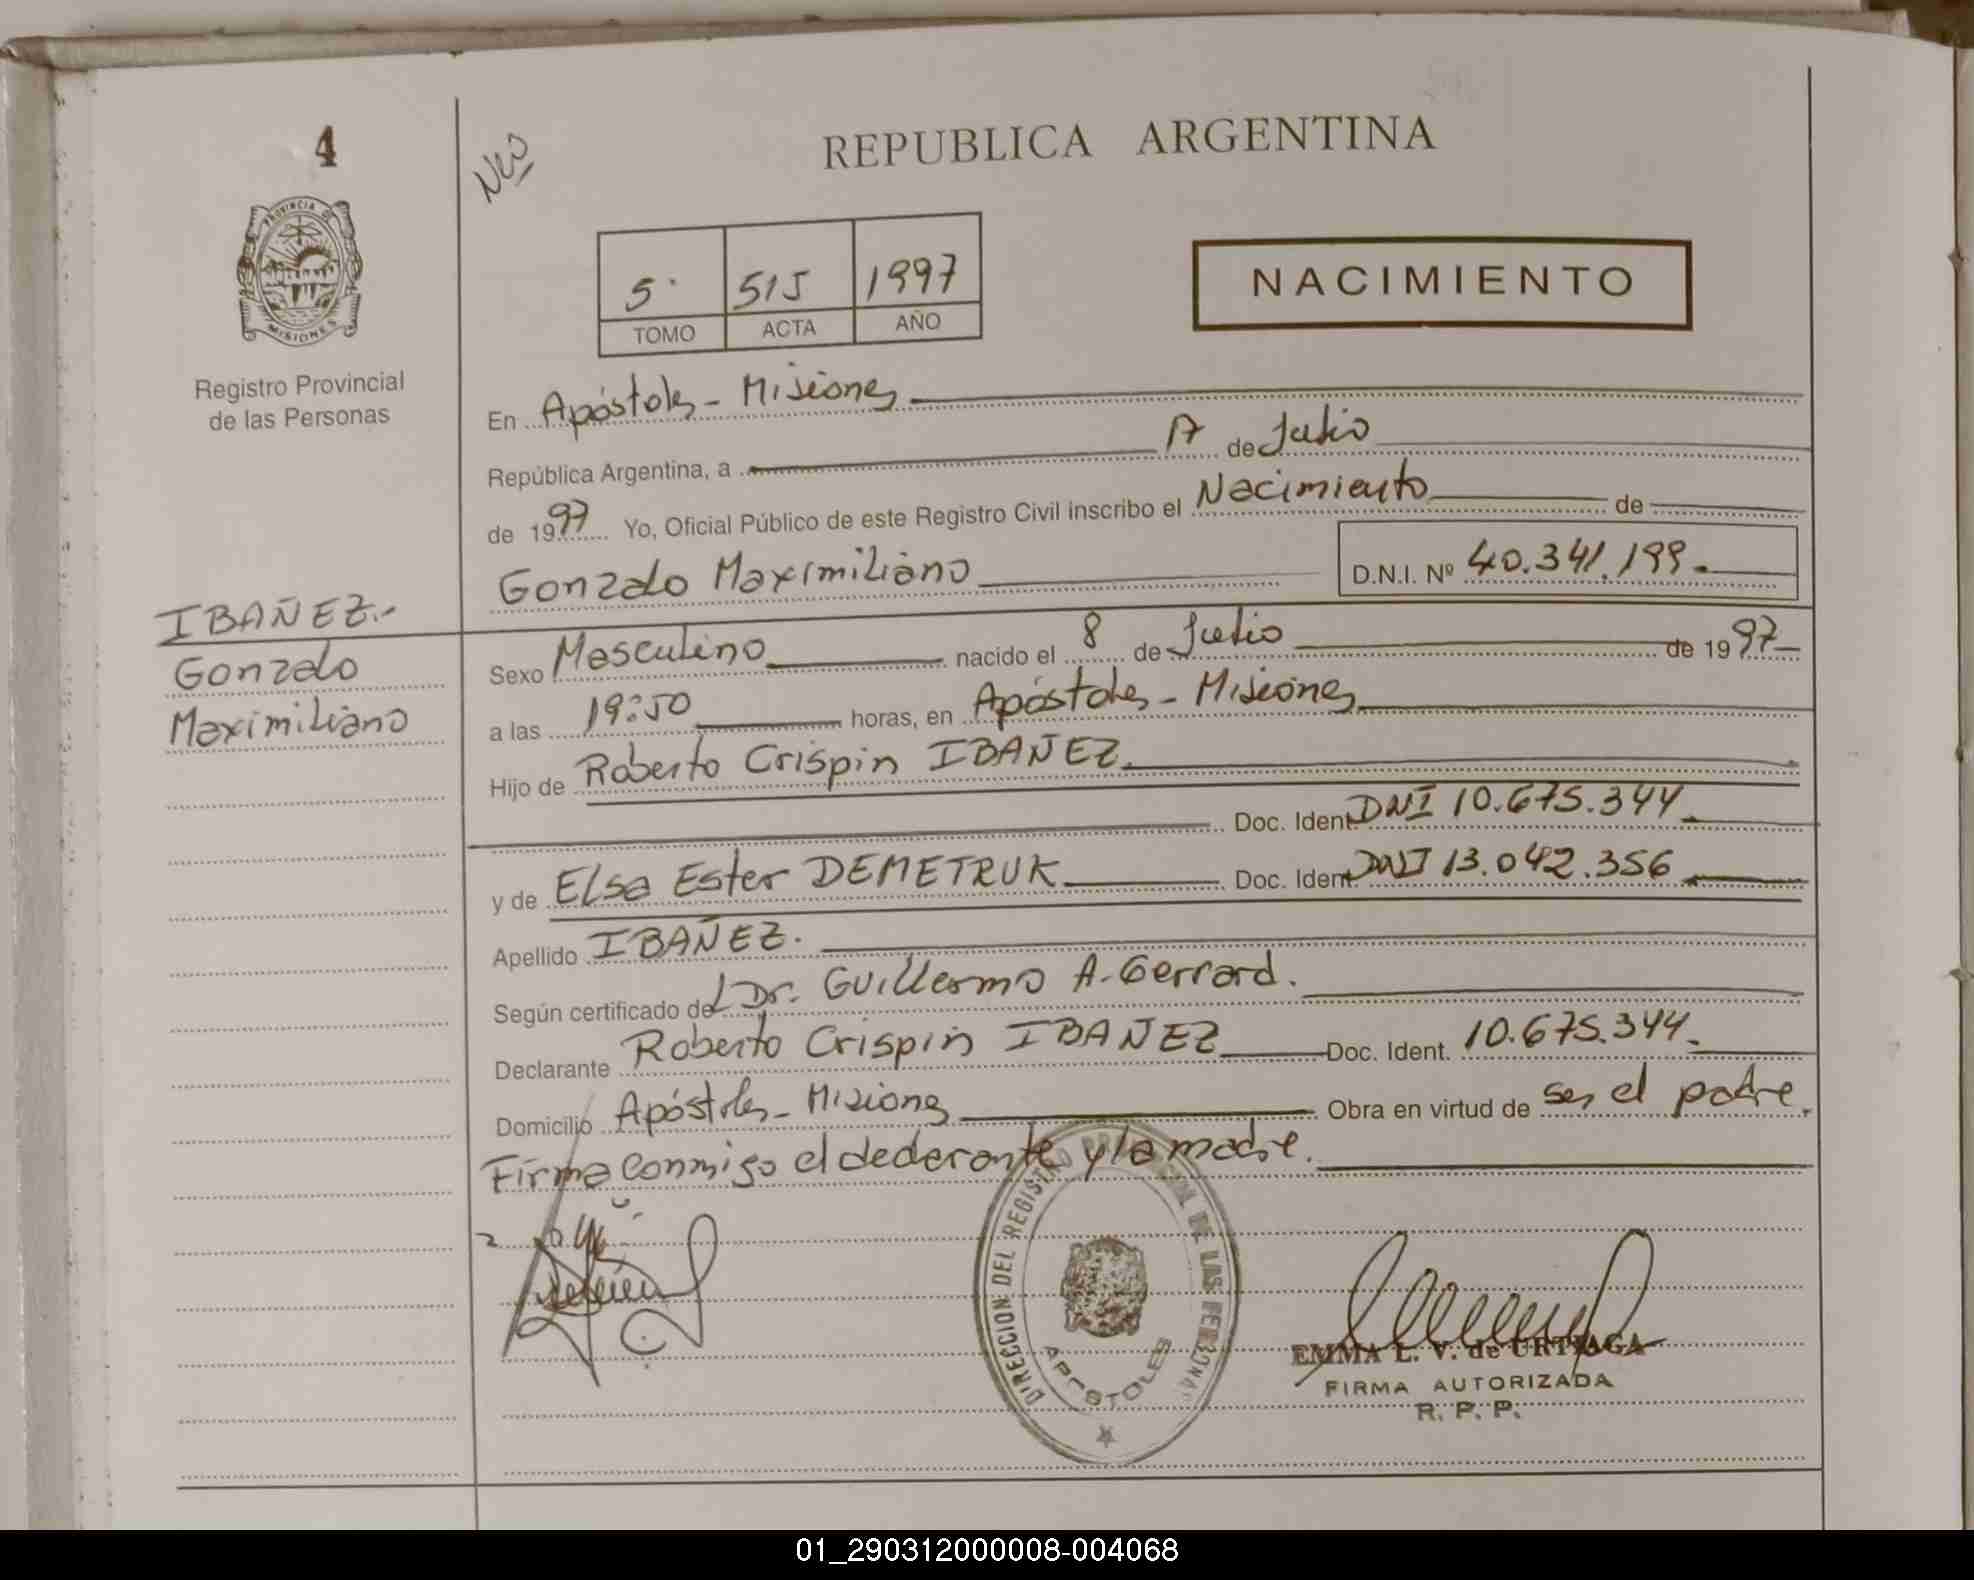 4
Nco
REPUBLICA ARGENTINA
PROVINCIA DE
MISIONES
5· 515 1997
TOMO ACTA AÑO
NACIMIENTO
Registro Provincial
de las Personas
En Apóstoles - Misiones
República Argentina, a 17 de Julio
de 1997 Yo, Oficial Público de este Registro Civil inscribo el Nacimiento de
Gonzalo Maximiliano D.N.I. Nº 40.341.199.-
IBAÑEZ.-
Gonzalo
Maximiliano
Sexo Masculino nacido el 8 de Julio de 1997
a las 19:50 horas, en Apóstoles - Misiones
Hijo de Roberto Crispin IBAÑEZ.
Doc. Ident. DNI 10.675.344
y de Elsa Ester DEMETRUK Doc. Ident. DNI 13.042.356
Apellido IBAÑEZ.
Según certificado del Dr. Guillermo A. Gerrard.
Declarante Roberto Crispin IBAÑEZ Doc. Ident. 10.675.344.
Domicilio Apóstoles - Misiones Obra en virtud de ser el padre.
Firma conmigo el declarante y la madre.
DIRECCION DEL REGISTRO DE LAS PERSONAS
APOSTOLES
EMMA L. V. de URTIAGA
FIRMA AUTORIZADA
R. P. P.
01_290312000008-004068